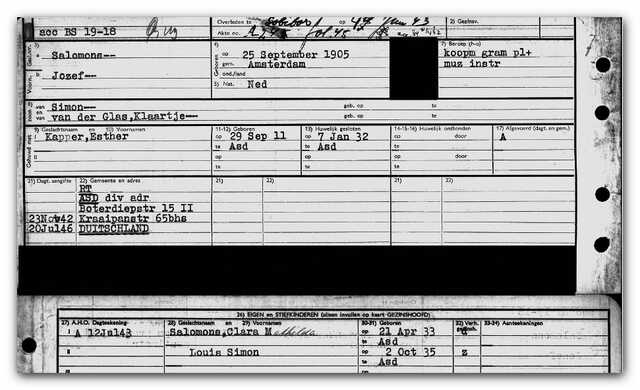 acc BS 19-18
Overleden te Sobibor op 4 Jun 43
Akte no.
2) Gezinsv.
3)
Salomons--
Jozef--
6)
op 25 September 1905
gem. Amsterdam
ond./land
5) Nat. Ned
7) Beroep (h-o)
koopm gram pl+
muz instr
van Simon-- geb. op te
en
van van der Glas,Klaartje-- geb. op te
9) Geslachtsnaam en 10) Voornamen
11-12) Geboren
13) Huwelijk gesloten
14-15-16) Huwelijk ontbonden
17) Afgevoerd (dagt. en gem.)
Kapper,Esther
op 29 Sep 11
op 7 Jan 32
op door
A
te Asd
te Asd
te
op op op door
te te te
21) Dagt. aangifte
22) Gemeente en adres
21)
22)
21)
22)
21)
22)
RT
ASD div adr
Boterdiepstr 15 II
23Nov42 Kraaipanstr 65bhs
20Jul46 DUITSCHLAND
26) EIGEN en STIEFKINDEREN (alleen invullen op kaart GEZINSHOOFD)
27) A.H.O. Dagteekening:
28) Geslachtsnaam en 29) Voornamen
30-31) Geboren
32) Verh.
33-34) Aanteekeningen
1 A 12Jul43
Salomons,Clara Mathilda
op 21 Apr 33
d
te Asd
Louis Simon
op 2 Oct 35
z
te Asd